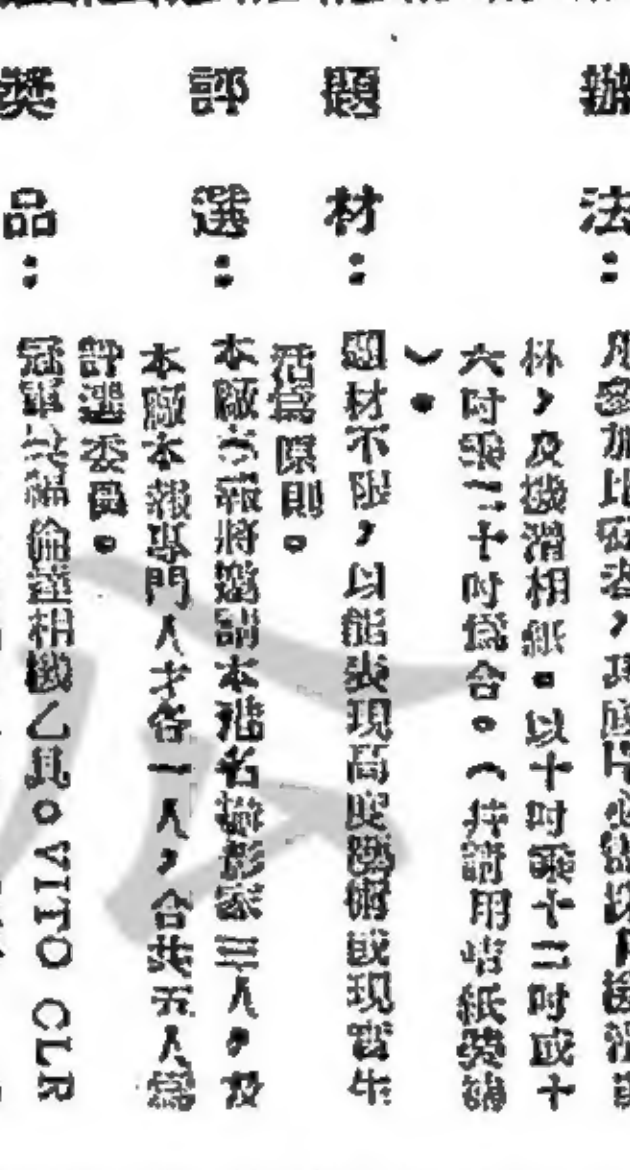 辦法：凡參加比賽者，其底片必需
林，及機滑相紙。以十吋乘十二吋或十
六吋乘二十吋爲合。（并請用咭紙裝鑲
）。
題材：題材不限，以能表現高度藝術或現實生
活爲原則。
評選：本廠本報將邀請本港名攝影家三人，及
本廠本報專門人才各一人，合共五人爲
評選委員。
獎品：冠軍福倫達相機乙具。VITO CLR